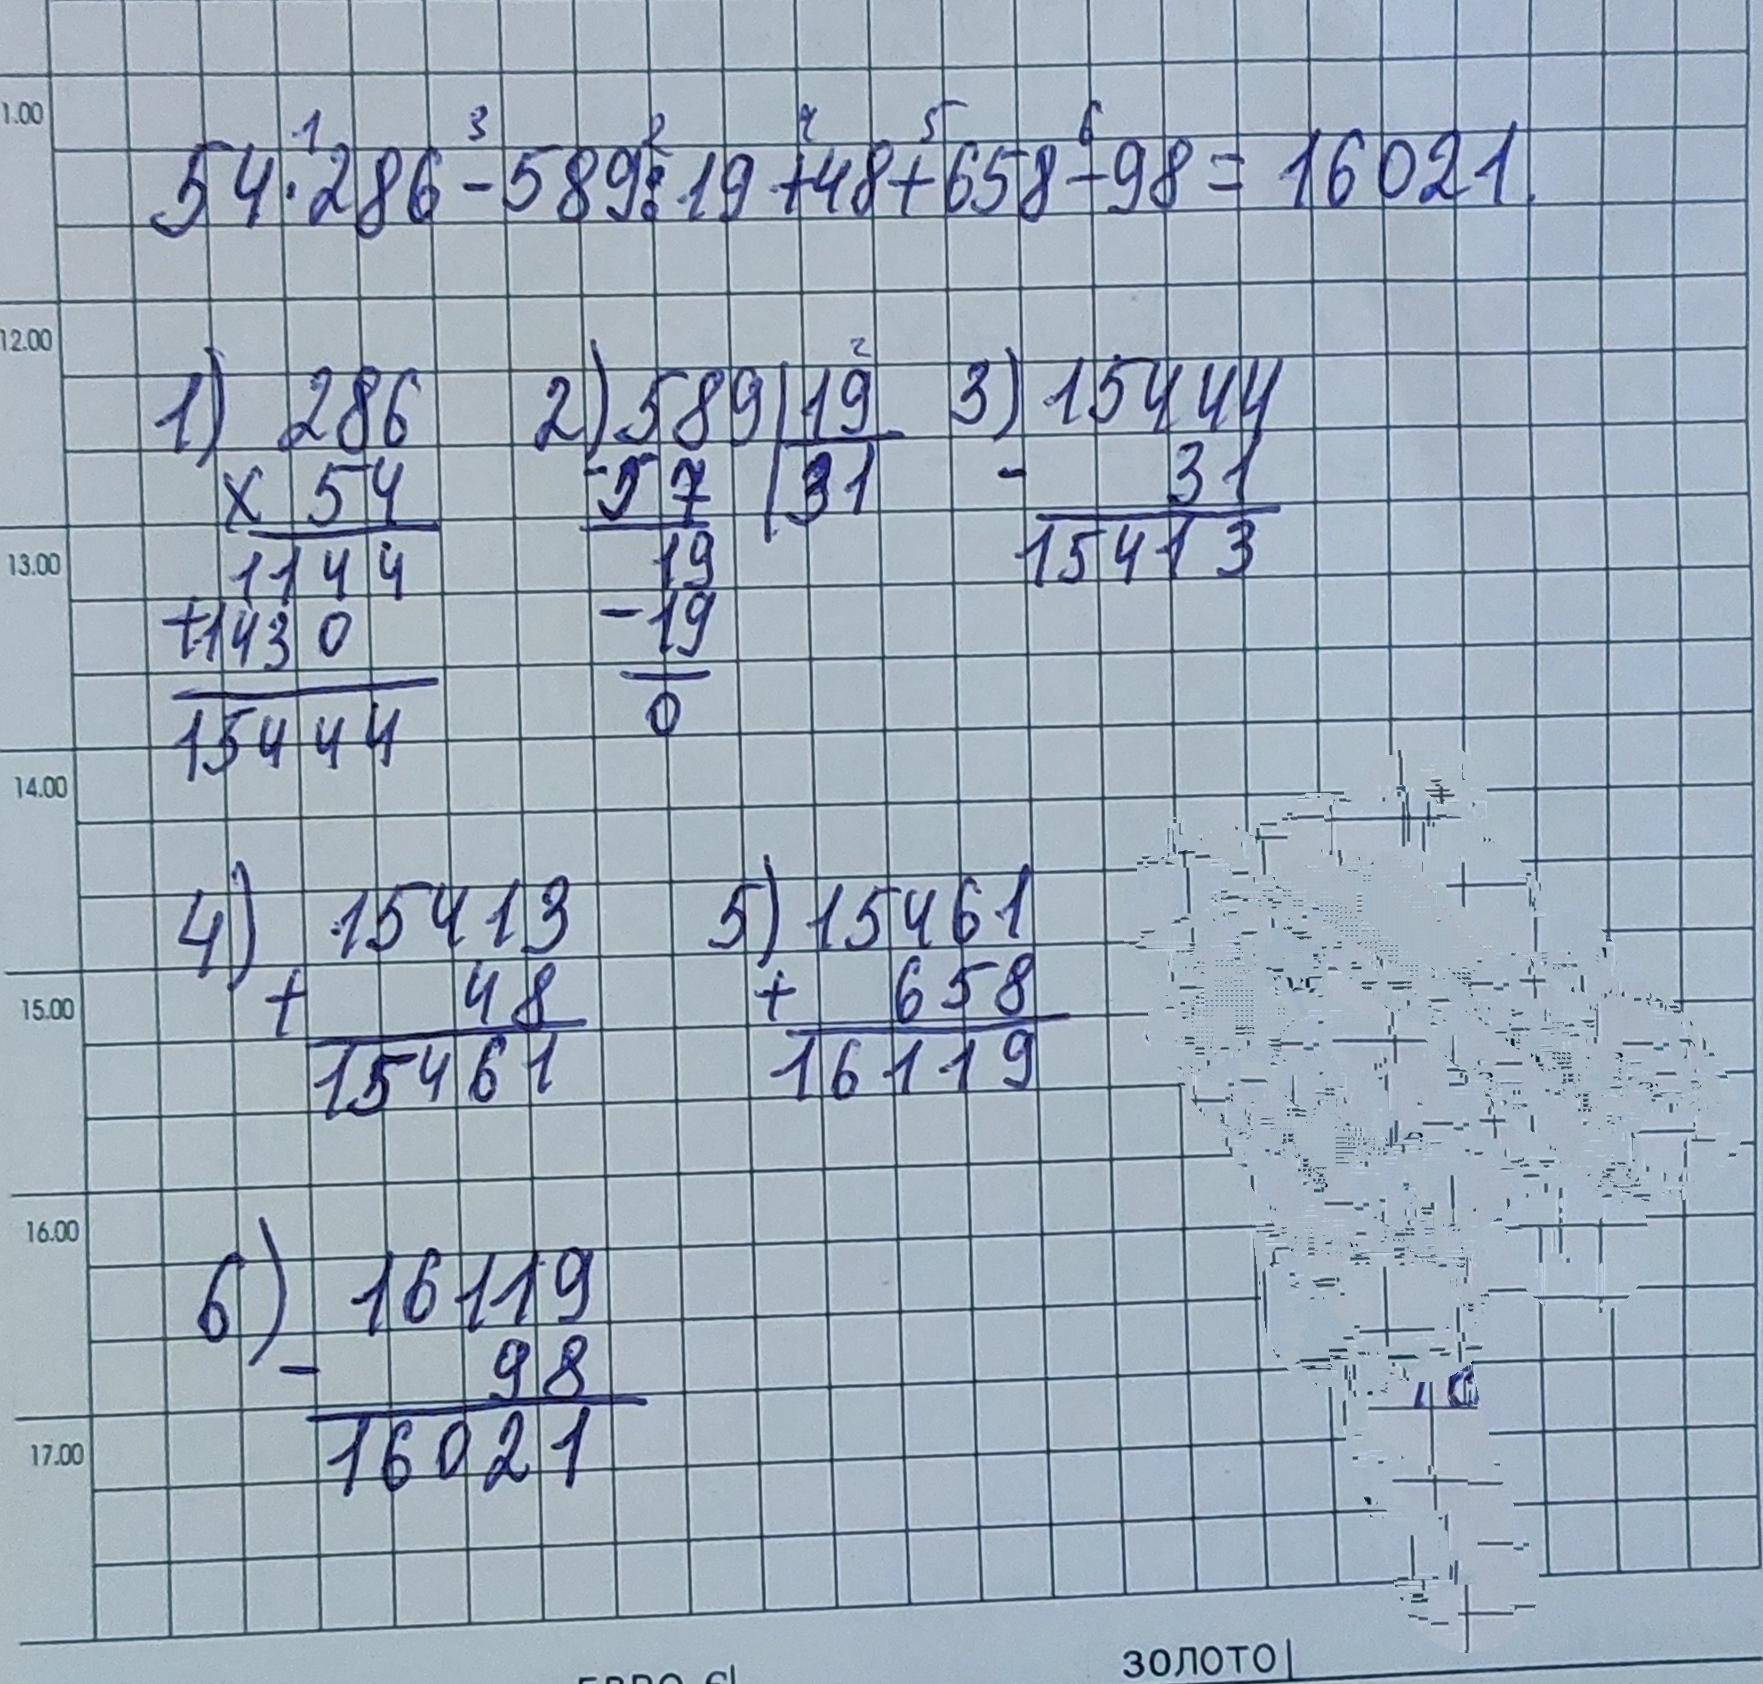 1.00
1 3 2 4 5 6
54·286-589:19+48+658-98=16021.
12.00
1) 286 2) 589|19 3) 15444
x 54 -57 |31 - 31
13.00
1144 19 15413
+1430 -19
15444 0
14.00
4) 15413 5) 15461
15.00
+ 48 + 658
15461 16119
16.00
6) 16119
- 98
17.00
16021
ЗОЛОТО